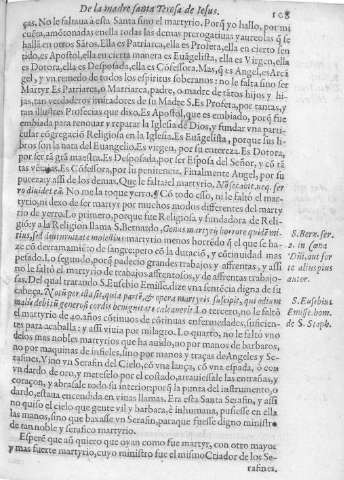 De la madre santa Teresa de Iesus. 108
ças, No le faltaua à esta Santa sino el martyrio. Porq̃ yo hallo, por mi
cuẽta, amõtonadas en ella todas las demas prerogatiuas y aureolas q̃ se
hallã en otros Sãtos. Ella es Patriarca, ella es Profeta, ella en cierto sen
tido, es Apostol, ella en cierta manera es Euãgelista, ella es Virgen, ella
es Dotora, ella es Desposada, ella es Cõfessora. Mas, q̃ es Angel, es Arcã
gel, y vn remedo de todos los espiritus soberanos: no le falta sino ser
Martyr. Es Patriarca, o Matriarca, padre, o madre de tãtos hijos y hi-
jas, tan verdaderos imitadores de su Madre S. Es Profeta, por tantas, y
tan illustres Profecias que dixo. Es Apostol, que es embiado, porq̃ fue
embiada para renouar y reparar la Iglesia de Dios, y fundar vna parti-
cular cõgregaciõ Religiosa en la Iglesia. Es Euãgelista, porque sus li-
bros son la nata del Euangelio. Es virgen, por su entereza. Es Dotora,
por ser tã grã maestra. Es Desposada, por ser Esposa del Señor, y cõ tã
tas veras. Es Cõfessora, por su penitencia, Finalmente Angel, por su
pureza: y assi de los demas. Que le falta? el martyrio.
No me la toque yerro. Cõ todo esso, ni le faltò el mar-
tyrio, ni dexo de ser martyr por muchos modos differentes del marty
rio de yerro. Lo primero, porque fue Religiosa y fundadora de Reli-
giõ: y a la Religion llama S. Bernardo, Genus martyrij horrore quidẽ mi-
tius, sed diuturnitate molestius: martyrio menos horrẽdo q̃ el que se ha-
ze cõ derramamiento de sangre: pero cõ la duraciõ, y cõtinuidad mas
pesado. Lo segundo, porq̃ padecio grandes trabajos y affrentas, y assi
no le faltò el martyrio de trabajos affrentosos, y de affrentas trabajo-
sas. Del qual tratando S. Eusebio Emisse. dize vna sentẽcia digna de su
cabeça.
Lo tercero, no le faltò
el martyrio de 40. años cõtinuos de cõtinuas enfermedades, suficien-
tes para acaballa: y assi viuia por milagro. Lo quarto, no le faltò vno
delos mas nobles martyrios que ha auido, no por manos de barbaros,
no por maquinas de infieles, sino por manos y traças de Angeles y Se-
rafines. Vino vn Serafin del Cielo, cõ vna lança, cõ vna espada, ò con
vn dardo de oro, y meteselo por el costado, atrauiessale las entrañas, y
coraçon, y abrasale todo su interior: porq̃ la punta del instrumento, o
dardo, estaua encendida en viuas llamas. Era esta Santa Serafin, y assi
no quiso el cielo que gente vil y barbara, è inhumana, pusiesse en ella
las manos, sino que baxasse vn Serafin, paraque fuesse digno ministro
de tan noble y serafico martyrio.
Esperè que aũ quiero que oyan como fue martyr, con otro mayor
y mas fuerte martyrio, cuyo ministro fue el mismo Criador de los Se-
rafines.
S. Bern. ser.
2. in Cœna
Dñi, aut for
te alius pius
autor.
S. Eusebius
Emisse. hom.
de S. Steph.